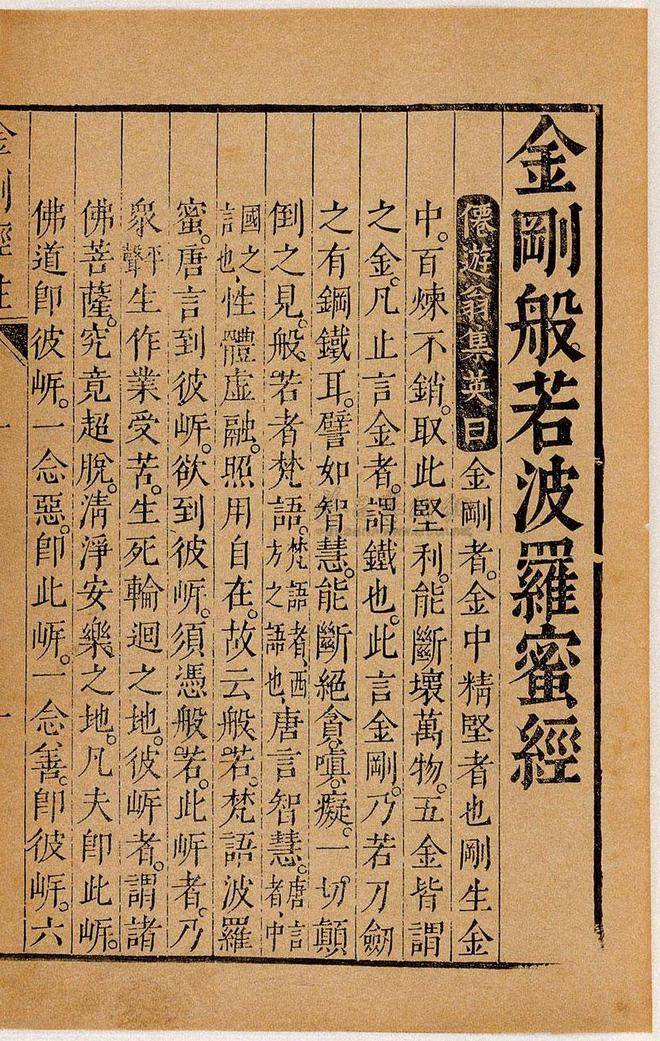 金剛般若波羅蜜經
僊遊翁集英曰金剛者。金中精堅者也剛生金
中。百煉不銷。取此堅利。能斷壞萬物。五金皆謂
之金。凡止言金者。謂鐵也。此言金剛。乃若刀劒
之有鋼鐵耳。譬如智慧。能斷絕貪。嗔。癡。一切顛
倒之見。般。若者梵語。梵語者、西方之語也、唐言智慧。唐言者、中
國之言也、性體虛融。照用自在。故云般。若。梵語波羅
蜜。唐言到彼㟁。欲到彼㟁。須憑般。若。此㟁者。乃
衆平聲生作業受苦。生死輪迴之地。彼㟁者。謂諸
佛菩薩。究竟超脫。清淨安樂之地。凡夫卽此㟁。
佛道卽彼㟁。一念惡。卽此㟁。一念善。卽彼㟁。六
金剛經註